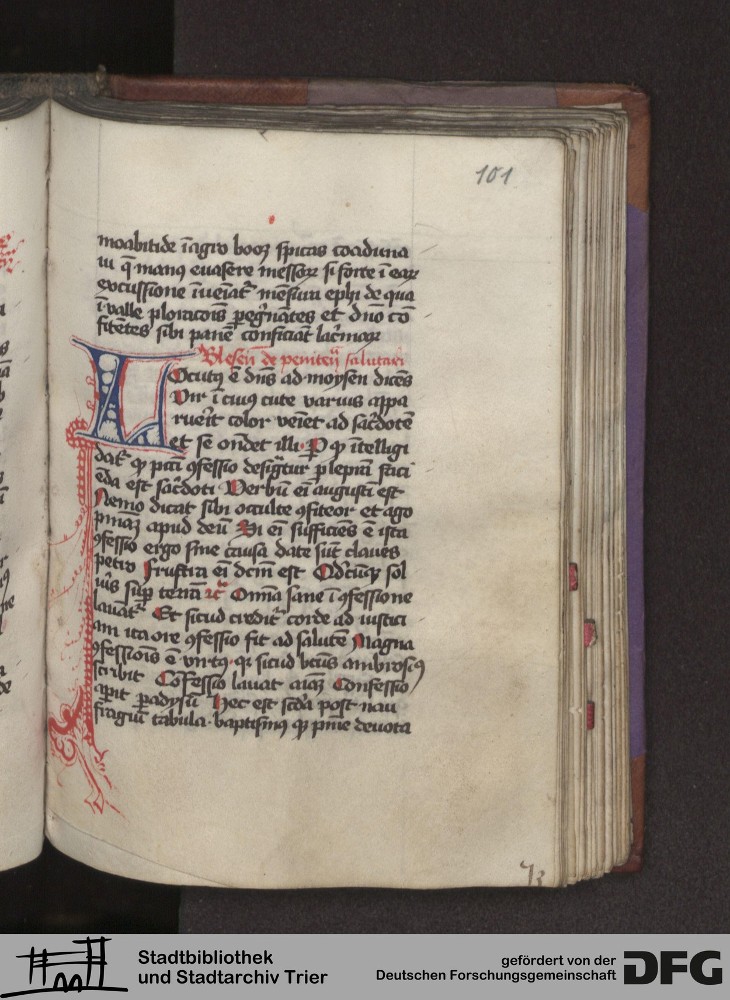 101
moabitide ī agro booz spicas coaduna
ui q̄ manꝰ euasere messoꝝ si forte ī eaꝝ
excussione īueīatʳ mēsura ephi de qua
ī valle ploracōis pegʳnātes et dn̄o cō
fitētes sibi panē conficiāt lacʳimaꝝ
Blesen̄ de penitēt̄ salutari
Locutꝰ ē dn̄s ad moysen dicēs
Vir ī cuiꝰ cute varius appa
ruerit color veīet ad sacʳdotē
et se ondet illi P ꝙ ītelligi
datʳ ꝙ pctī ꝯfessio desigʳtur p leprā faci
ēda est sacʳdoti Verbū eī augusti est
Nemo dicat sibi occulte ꝯfiteor et ago
pnīaꝫ apud deū Si eī sufficiēs ē ista
ꝯfessio ergo sine causa date sūt claues
petro Frustra eī dcm̄ est Qdcūqꝫ sol
uīs suꝑ terrā ⁊cʳ Omīa sane ī ꝯfessione
lauātʳ Et sicud creditʳ corde ad iustici
am ita ore ꝯfessio fit ad salutē Magna
ꝯfessiōis ē virtꝰ qꝛ sicud btūs ambrosiꝰ
scribit Cōfessio lauat aīaꝫ Confessio
apit padysū Hec est scda post nau
fragiū tabula baptismꝰ ꝙ pnīe deuota
73
Stadtbibliothek
und Stadtarchiv Trier
gefördert von der
Deutschen Forschungsgemeinschaft
DFG